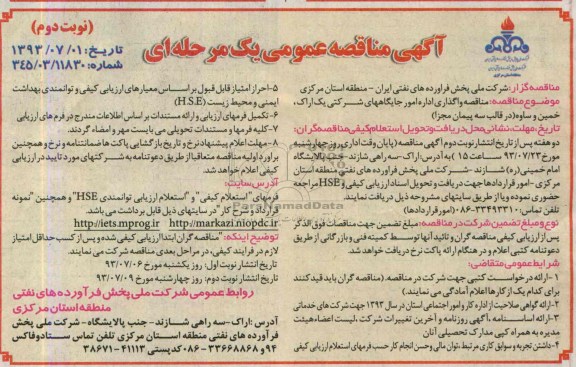 (نوبت دوم)
آگهی مناقصه عمومی یک مرحله‌ای
تاریخ: ۱۳۹۳/۰۷/۰۱
شماره: ۳۴۵/۰۳/۱۱۸۳۰
مناقصه گزار: شرکت ملی پخش فرآورده های نفتی ایران - منطقه استان مرکزی
موضوع مناقصه: مناقصه واگذاری اداره امور جایگاههای شرکتی یک اراک،
خمین و ساوه (در قالب سه پیمان مجزا)
تاریخ، مهلت، نشانی محل دریافت و تحویل استعلام کیفی مناقصه گران:
دو هفته پس از تاریخ انتشار نوبت دوم آگهی مناقصه (پایان وقت اداری روز چهارشنبه
مورخ ۹۳/۰۷/۲۳ ساعت ۱۵) به آدرس: اراک-سه راهی شازند- جنب پالایشگاه
امام خمینی (ره) شازند - شرکت ملی پخش فرآورده های نفتی منطقه استان
مرکزی - امور قراردادها جهت دریافت و تحویل اسناد ارزیابی کیفی و HSE مراجعه
حضوری نموده و یا از طریق سایتهای مشروحه ذیل دریافت نمایند.
تلفن تماس: ۳۳۴۹۳۳۱۰-۰۸۶ (امور قراردادها)
نوع و مبلغ تضمین شرکت در مناقصه: مبلغ تضمین جهت مناقصات فوق الذکر
پس از ارزیابی کیفی مناقصه گران و تائید آنها توسط کمیته فنی و بازرگانی از طریق
دعوتنامه کتبی اعلام و در هنگام ارائه پاکت نرخ دریافت خواهد شد.
شرایط عمومی متقاضی:
۱- ارائه درخواست کتبی جهت شرکت در مناقصه. (مناقصه گران باید قید کنند
برای کدام یک از کارها اعلام آمادگی می نمایند.)
۲- ارائه گواهی صلاحیت از اداره کار و امور اجتماعی استان در سال ۱۳۹۳ جهت شرکت های خدماتی
۳- ارائه اساسنامه، آگهی روزنامه و آخرین تغییرات شرکت، لیست اعضاء هیئت
مدیره به همراه کپی مدارک تحصیلی آنان
۴- داشتن تجربه و سوابق کاری مرتبط، توان مالی و حسن انجام کار حسب فرمهای استعلام ارزیابی کیفی
۵- احراز امتیاز قابل قبول بر اساس معیارهای ارزیابی کیفی و توانمندی بهداشت
ایمنی و محیط زیست (H.S.E)
۶- تکمیل فرمهای ارزیابی و ارائه مستندات بر اساس اطلاعات مندرج در فرم های ارزیابی
۷- کلیه فرمها و مستندات تحویلی می بایست مهر و امضاء گردند.
۸- مهلت اعلام پیشنهاد نرخ و تاریخ بازگشایی پاکت ها ضمانتنامه و نرخ و همچنین
برآورد اولیه مناقصه متعاقبا از طریق دعوتنامه به شرکتهای مورد تایید در ارزیابی
کیفی اعلام خواهد شد.
آدرس سایت:
فرمهای "استعلام کیفی" و "استعلام ارزیابی توانمندی HSE" و همچنین "نمونه
قرارداد و شرح کار" در سایتهای ذیل قابل برداشت می باشد.
http://iets.mprog.ir http://markazi.niopdc.ir
توضیح اینکه: "مناقصه گران ابتدا ارزیابی کیفی شده و پس از کسب حداقل امتیاز
لازم در فرایند کیفی، در مراحل بعدی مناقصه شرکت می نمایند.
تاریخ انتشار نوبت اول: روز یکشنبه مورخ ۹۳/۰۷/۰۶
تاریخ انتشار نوبت دوم: روز چهارشنبه مورخ ۹۳/۰۷/۰۹
روابط عمومی شرکت ملی پخش فرآورده های نفتی
منطقه استان مرکزی
آدرس: اراک-سه راهی شازند- جنب پالایشگاه - شرکت ملی پخش
فرآورده های نفتی منطقه استان مرکزی تلفن تماس ستاد و فاکس
۹۴ و ۳۳۶۶۸۸۶۸-۰۸۶ کدپستی ۴۱۱۱۳-۳۸۶۷۱